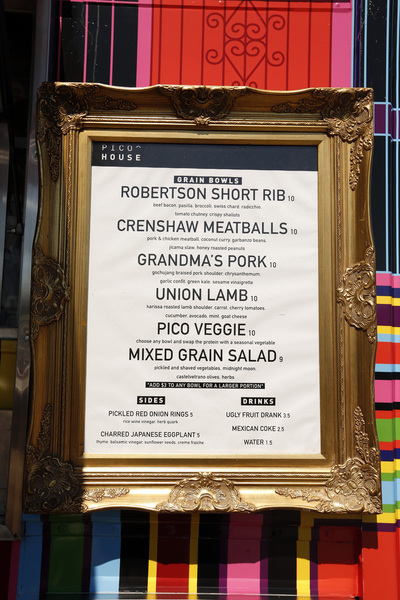 PICO
HOUSE
GRAIN BOWLS
ROBERTSON SHORT RIB 10
beef bacon, pasilla, broccoli, swiss chard, radicchio,
tomato chutney, crispy shallots
CRENSHAW MEATBALLS 10
pork & chicken meatball, coconut curry, garbanzo beans,
jicama slaw, honey roasted peanuts
GRANDMA'S PORK 10
gochujang braised pork shoulder, chrysanthemum,
garlic confit, green kale, sesame vinaigrette
UNION LAMB 10
harissa roasted lamb shoulder, carrot, cherry tomatoes,
cucumber, avocado, mint, goat cheese
PICO VEGGIE 10
choose any bowl and swap the protein with a seasonal vegetable
MIXED GRAIN SALAD 9
pickled and shaved vegetables, midnight moon,
castelvetrano olives, herbs
*ADD $3 TO ANY BOWL FOR A LARGER PORTION*
SIDES
PICKLED RED ONION RINGS 5
rice wine vinegar, herb quark
CHARRED JAPANESE EGGPLANT 5
thyme, balsamic vinegar, sunflower seeds, creme fraiche
DRINKS
UGLY FRUIT DRANK 3.5
MEXICAN COKE 2.5
WATER 1.5